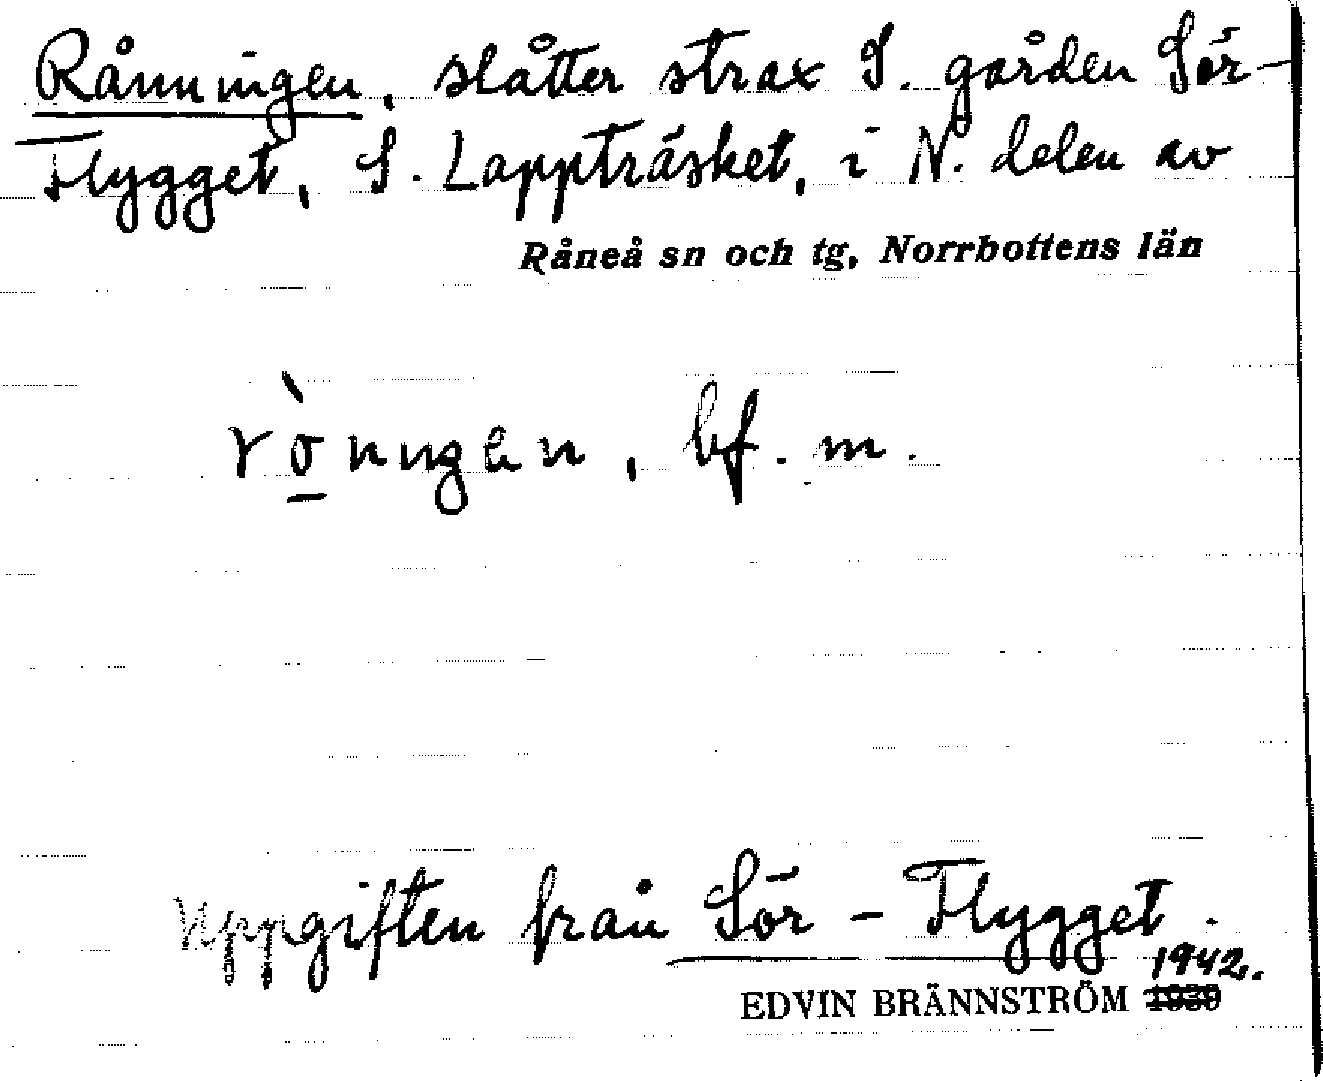 Rånningen, slåtter strax S. gården Sör-
Flygget, S. Lappträsket, i N. delen av
Råneå sn och tg, Norrbottens län
rò̲nngen, bf. m.
Uppgiften från Sör-Flygget.
1942.
EDVIN BRÄNNSTRÖM 1939